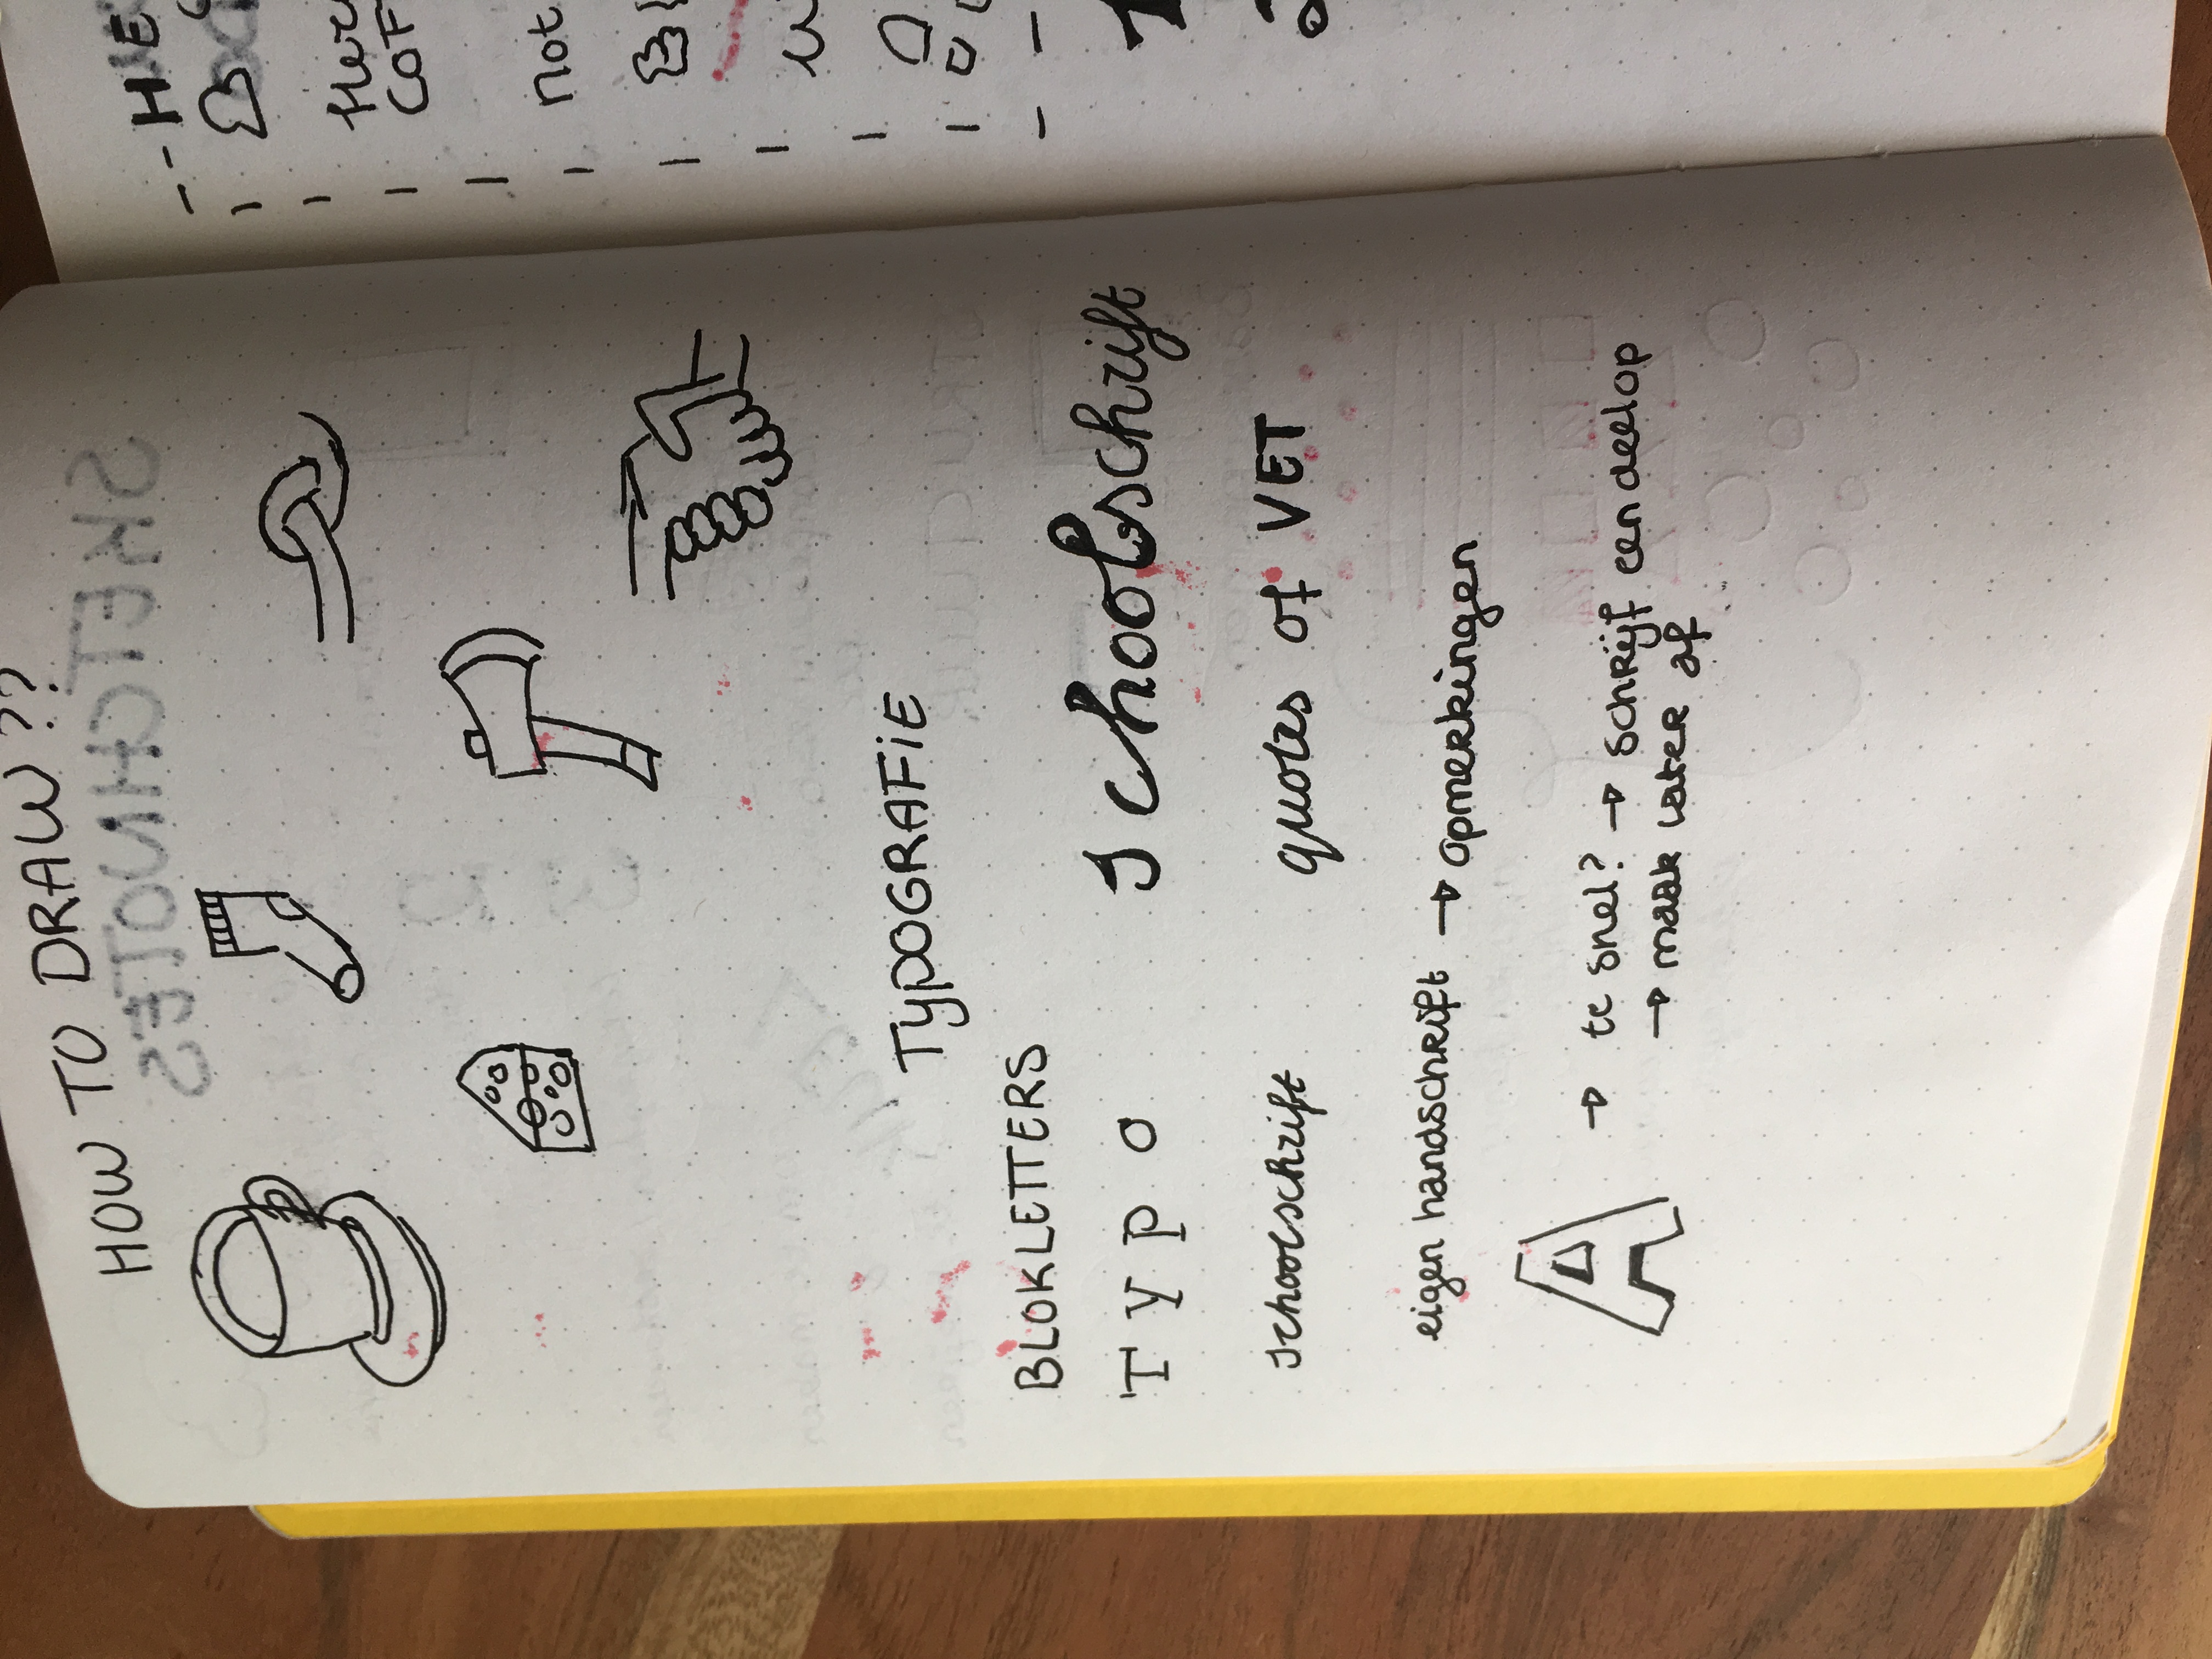 HOW TO DRAW??
SKETCHNOTES
TYPOGRAFIE
BLOKLETTERS
Typo
Schoolschrift
Schoolschrift
quotes of VET
eigen handschrift → opmerkingen
A → te snel? → schrijf een deel op
→ maak later af
HE
Not